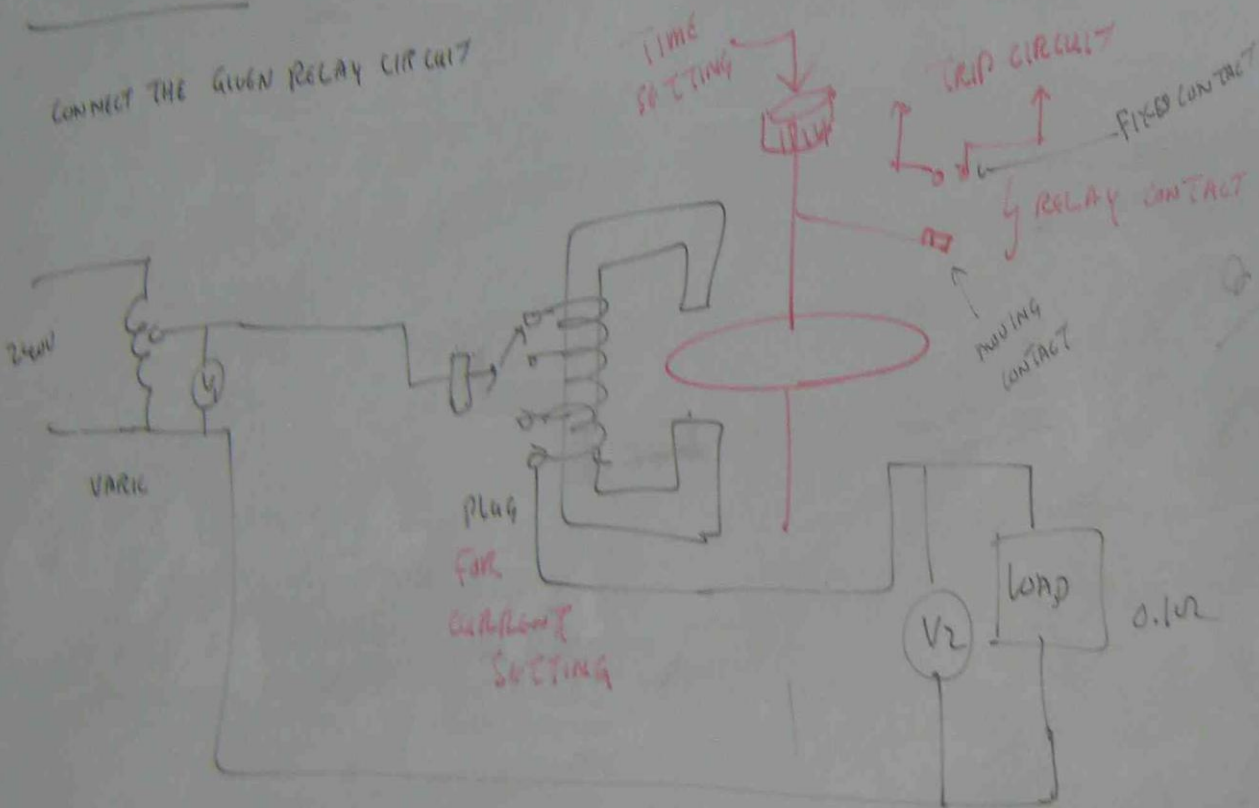 CONNECT THE GIVEN RELAY CIRCUIT
TIME
SETTING
TRIP CIRCUIT
FIXED CONTACT
RELAY CONTACT
MOVING
CONTACT
240V
VARIC
PLUG
FOR
CURRENT
SETTING
V2
LOAD
0.1Ω